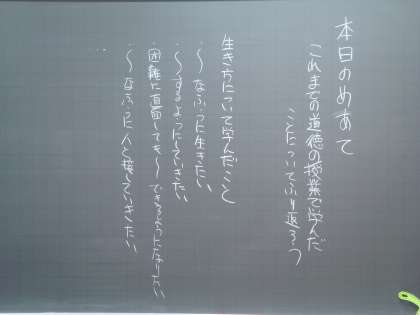 本日のめあて
これまでの道徳の授業で学んだ
ことについてふり返ろう
生き方について学んだこと
・〜なふうに生きたい
・〜するようにしていきたい
・困難に直面しても〜できるようになりたい
・〜なふうに人と接していきたい